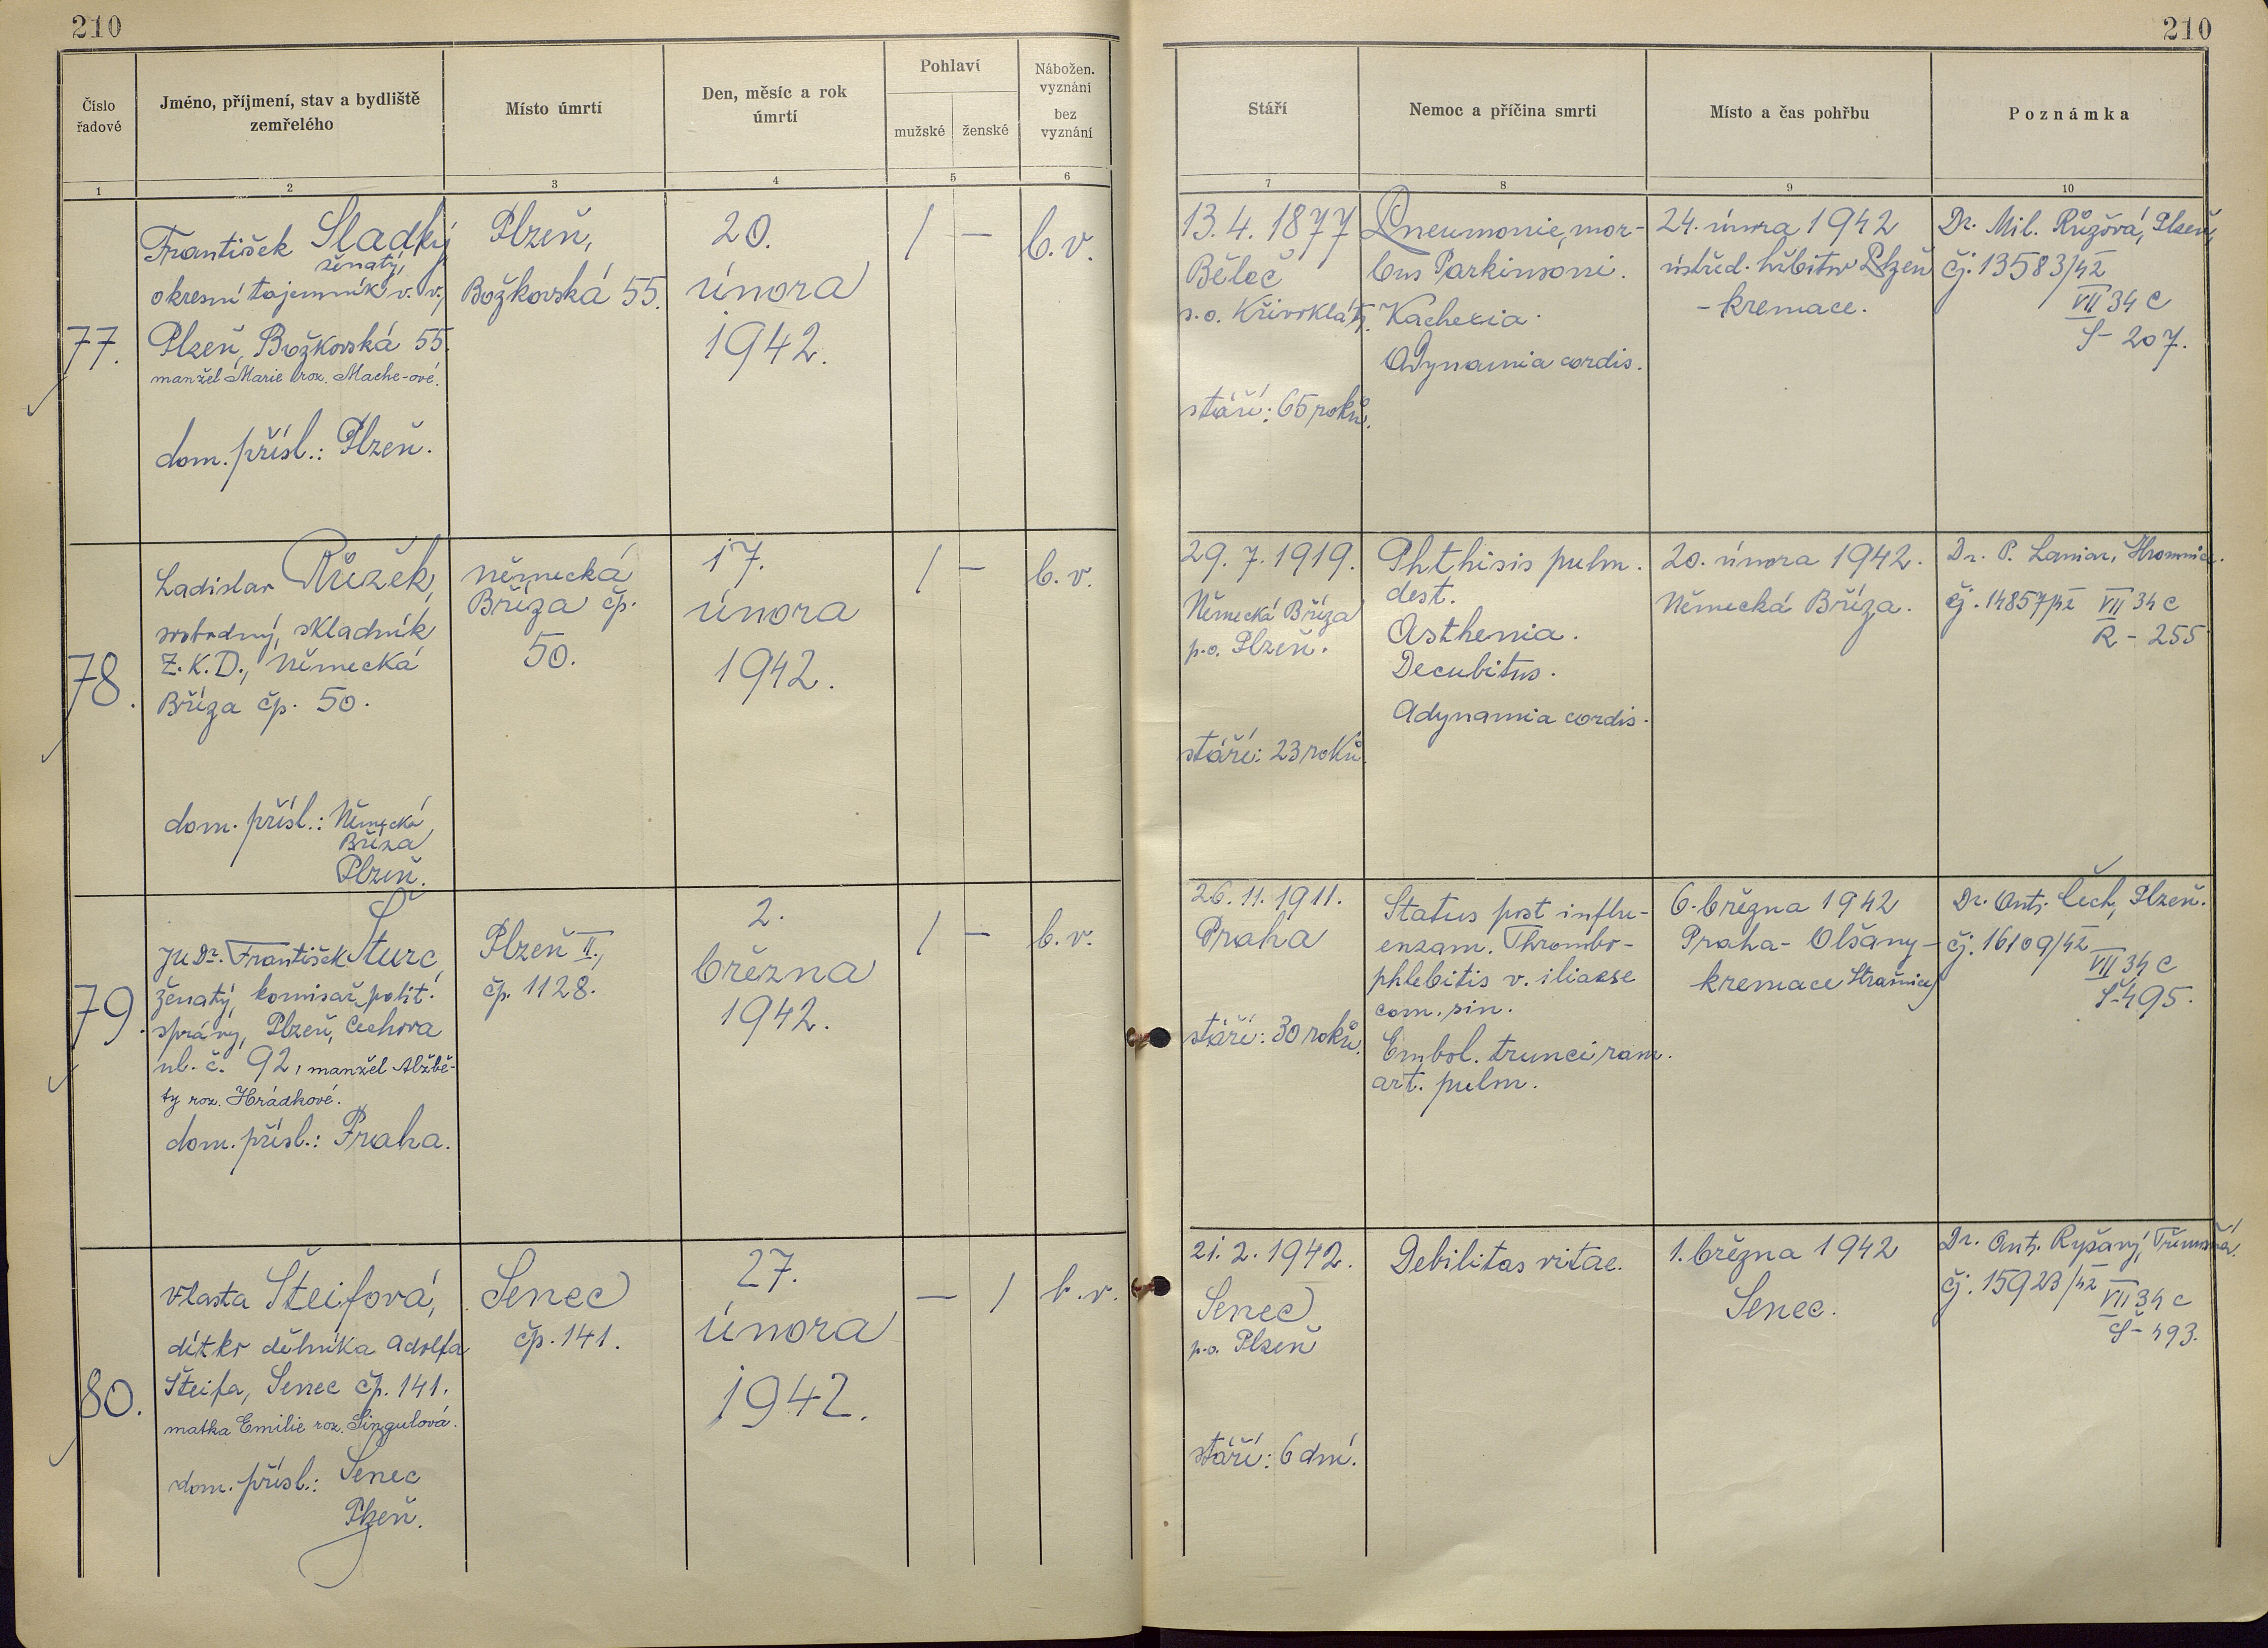 210
210
Číslo řadové
Jméno, příjmení, stav a bydliště zemřelého
Místo úmrtí
Den, měsíc a rok úmrtí
Pohlaví
mužské
ženské
Nábožen. vyznání
bez vyznání
Stáří
Nemoc a příčina smrti
Místo a čas pohřbu
Poznámka
1
2
3
4
5
6
7
8
9
10
77.
František Sladký
ženatý,
okresní tajemník v. v.,
Plzeň, Božkovská 55.
manžel Marie roz. Mache-ové.
dom. přísl.: Plzeň.
Plzeň,
Božkovská 55.
20.
února
1942.
/
—
b. v.
13. 4. 1877
Běleč
s.o. Křivoklát,
stáří: 65 roků.
Pneumonie, mor-
bus Parkinsoni.
Kachexia.
Adynamia cordis.
24. února 1942
ústřed. hřbitov Plzeň
- kremace.
Dr. Mil. Růžová, Plzeň,
čj. 13583/42
VII 34 c
S - 207.
78.
Ladislav Růžek,
svobodný, skladník
Z. K. D., Německá
Bříza čp. 50.
dom. přísl.: Německá
Bříza
Plzeň.
Německá
Bříza čp.
50.
17.
února
1942.
/
—
b. v.
29. 7. 1919.
Německá Bříza
p.o. Plzeň.
stáří: 23 roků.
Phthisis pulm.
dest.
Asthenia.
Decubitus.
Adynamia cordis.
20. února 1942.
Německá Bříza.
Dr. P. Hromnice.
čj. 14857/42 VII 34 c
R - 255
79.
JUDr. František Šturc,
ženatý, komisař polit.
správy, Plzeň, Čechova
ul. č. 92, manžel Alžbě-
ty roz. Hrádkové.
dom. přísl.: Praha.
Plzeň II.,
čp. 1128.
2.
března
1942.
/
—
b. v.
26. 11. 1911.
Praha
stáří: 30 roků.
Status post influ-
enzam. Thrombo-
phlebitis v. iliacse
com. sin.
Embol. trunci ram.
art. pulm.
6. března 1942
Praha - Olšany -
kremace Strašnice
Dr. Ant. Čech, Plzeň.
čj. 16109/42
VII 34 c
Š-495.
80.
Vlasta Šteifová,
dítko dělníka Adolfa
Šteifa, Senec čp. 141.
matka Emilie roz. Singulová.
dom. přísl.: Senec
Plzeň.
Senec
čp. 141.
27.
února
1942.
—
/
b. v.
21. 2. 1942.
Senec
p.o. Plzeň
stáří: 6 dní.
Debilitas vitae.
1. března 1942
Senec.
Dr. Ant. Ryšavý, Třemošná.
čj. 15923/42
VII 34 c
Š - 493.